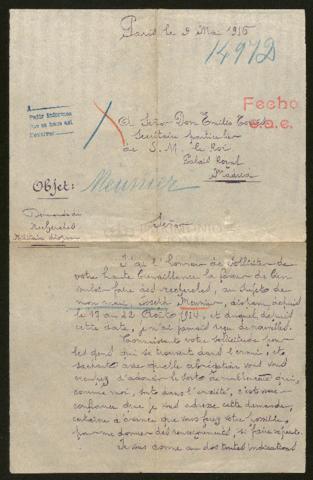 Paris le 9 Mai 1916
14972
A Señor Don Emilio
Secrétaire particulier
de S. M. le Roi
Palais Royal
Madrid
Fecho
A
Pedir informes
Objet:
Meunier
Demande de
Recherches
Militaire disparu
Señor
J'ai l'honneur de solliciter de
votre haute bienveillance la faveur de bien
vouloir faire des recherches, au sujet de
mon mari, Joseph Meunier, disparu depuis
le 17 au 22 Août 1914, et duquel depuis
cette date, je n'ai jamais reçu de nouvelles.
Connaissant votre sollicitude pour
les gens qui se trouvent dans l'ennui, et
sachant avec quelle abnégation vous vous
d'adoucir le sort de ceux qui,
comme moi, sont dans l'anxiété, c'est avec
confiance que je vous adresse cette demande,
certaine d'avance que vous ferez votre possible,
pour me donner des renseignements,
Je vous donne au dos toutes indications